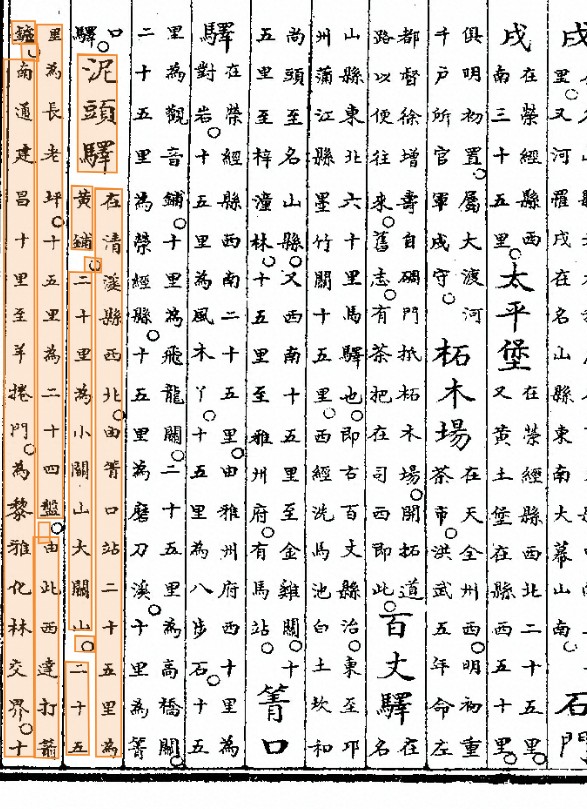 戍
里○又河羅戍在名山縣東南大幕山南○
石門
戍
在榮經縣西
南三十五里○
太平堡
在榮經縣西北二十五里○
又黃土堡在縣西五十里○
俱明初置○屬大渡河
千戶所官軍戍守○
柘木場
在天全州西○明初重
茶市○洪武五年命左
都督徐增壽自碉門抵柘木場○開拓道
路以便往來○舊志○有茶把在司西即此○
百丈驛
在
名
山縣東北六十里馬驛也○即古百丈縣治○東至邛
州蒲江縣墨竹關十五里○西經洗馬池白土坎和
尚頭至名山縣○又西南十五里至金雞關○十
五里至梓潼林○十五里至雅州府○有馬站○
箐口
驛
在榮經縣西南二十五里○由雅州府西十里為
對岩○十五里為風木丫○十五里為八步石○十五
里為觀音鋪○十里為飛龍關○二十五里為高橋關○
二十五里為榮經縣○十五里為磨刀溪○十里為箐
口
驛○
泥頭驛
在清溪縣西北○由箐口站二十五里為
黃鋪○二十里為小關山大關山○二十五
里為長老坪○十五里為二十四盤○由此西達打箭
鑪○南通建昌十里至羊捲門○為黎雅化林交界○十